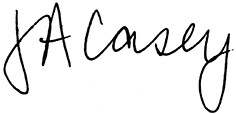 JA Casey